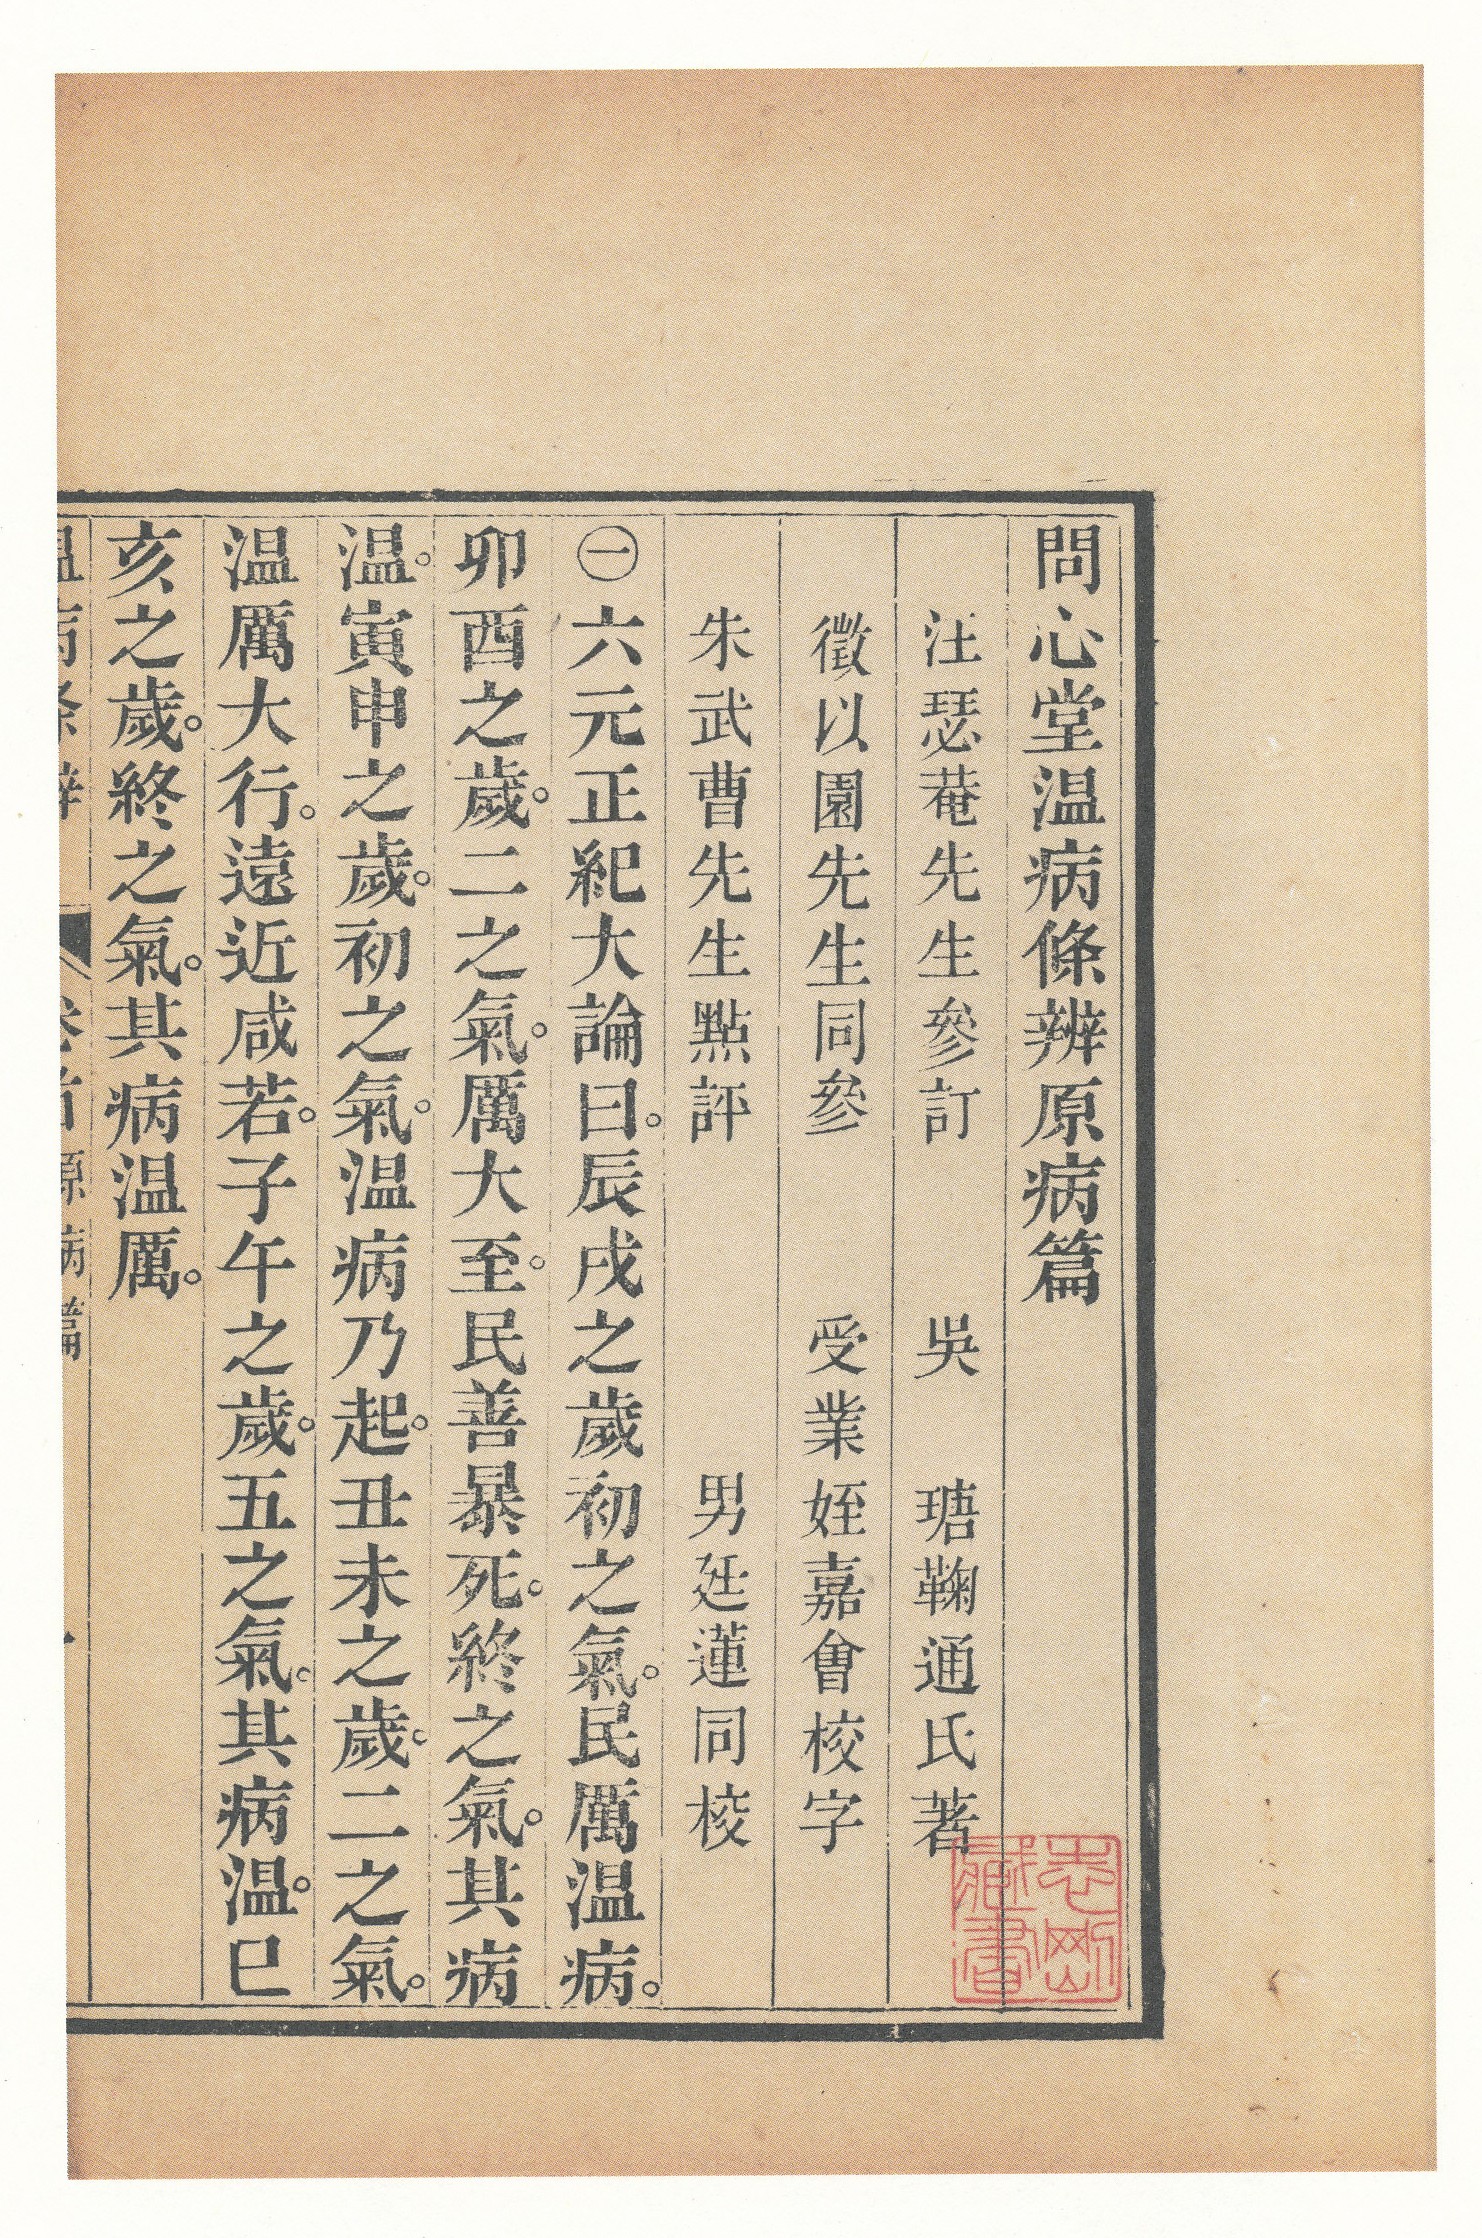 問心堂温病條辨原病篇
汪瑟菴先生參訂　吳　瑭鞠通氏著
徵以園先生同參　受業姪嘉會校字
朱武曹先生點評　男廷蓮同校
㊀六元正紀大論曰。辰戌之歲初之氣。民厲温病。
卯酉之歲。二之氣。厲大至。民善暴死。終之氣。其病
温。寅申之歲。初之氣。温病乃起。丑未之歲。二之氣。
温厲大行。遠近咸若。子午之歲。五之氣。其病温。巳
亥之歲。終之氣。其病温厲。
温病條辨　卷首　原病篇　一
藏書